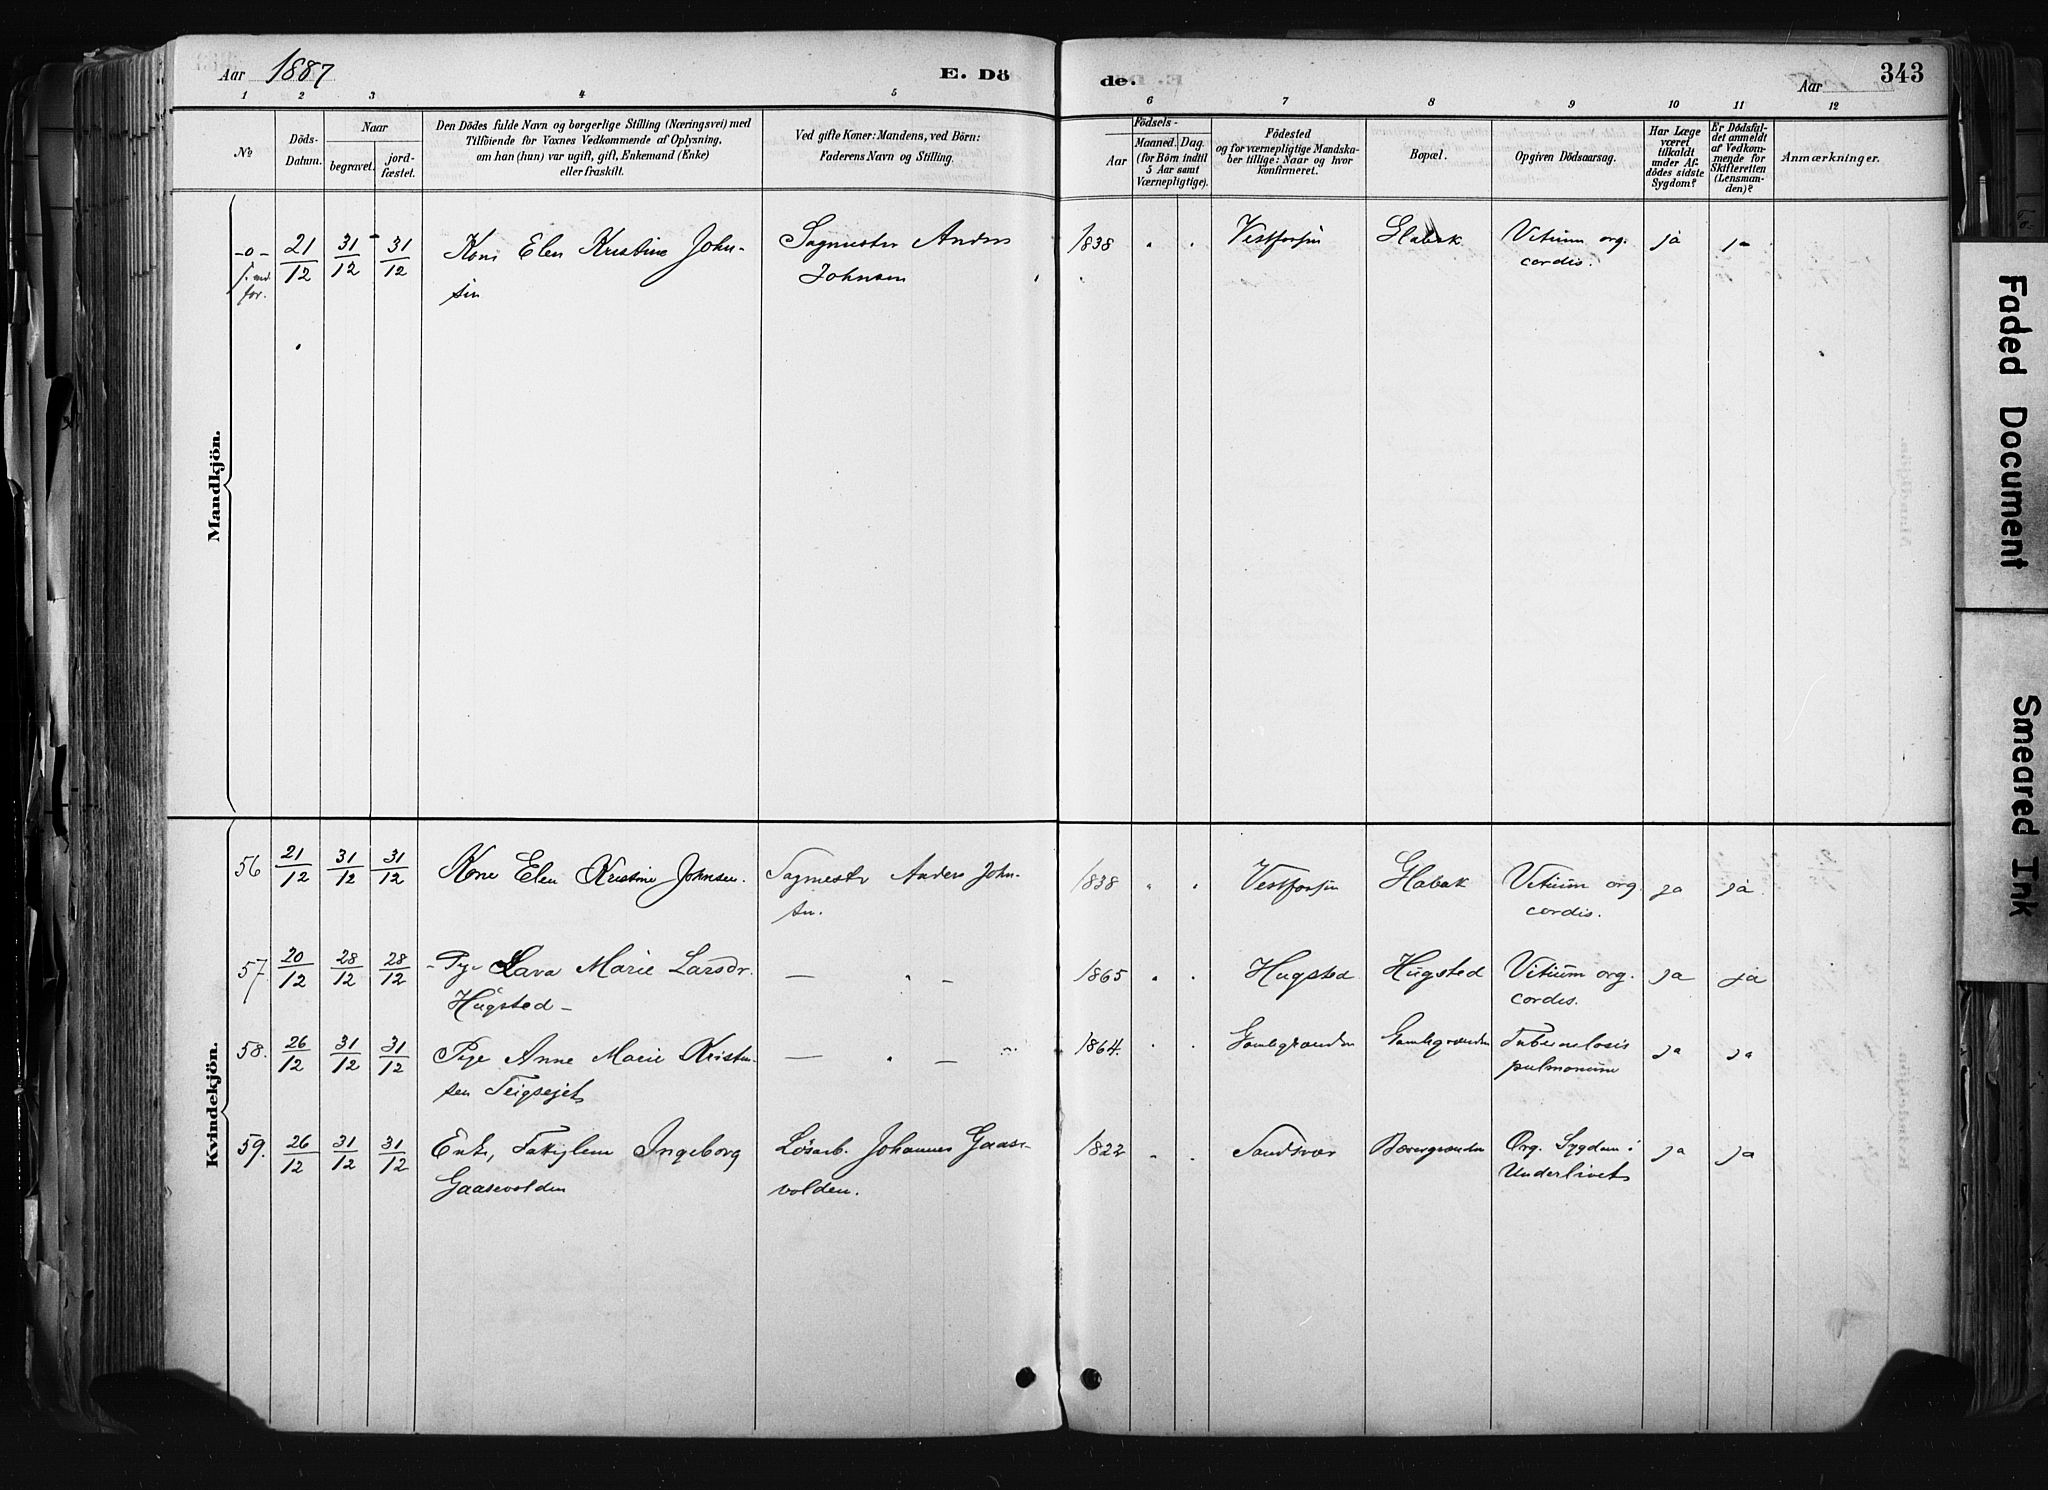 Aar 1887
E. Dö
de.
Aar
343
1 2 3 4 5 6 7 8 9 10 11 12
No
Döds-
Datum.
Naar
begravet.
jord-
fæstet.
Den Dödes fulde Navn og borgerlige Stilling (Næringsvei) med
Tilföiende for Voxnes Vedkommende af Oplysning,
om han (hun) var ugift, gift, Enkemand (Enke)
eller fraskilt.
Ved gifte Koner: Mandens, ved Börn:
Faderens Navn og Stilling.
Födsels-
Aar
Maaned. Dag.
(for Börn indtil
5 Aar samt
Værnepligtige).
Födested
og for værnepligtige Mandska-
ber tillige: Naar og hvor
konfirmeret.
Bopæl.
Opgiven Dödsaarsag.
Har Læge
været
tilkaldt
under Af-
dödes sidste
Sygdom?
Er Dödsfal-
det anmeldt
af Vedkom-
mende for
Skifteretten
(Lensman-
den)?
Anmærkninger.
Mandkjön.
-o- 21/12 31/12 31/12 Kone Elen Kristine John-
sen
Sagmester Anders
Johnsen
1838 Vestfossen Glabak Vitium org.
cordis. ja ja
Kvindekjön.
56 21/12 31/12 31/12 Kone Elen Kristine Johnsen. Sagmester Anders John-
sen. 1838 Vestfossen Glabak Vitium org.
cordis. ja ja
57. 20/12 28/12 28/12 Pige Lava Marie Larsdr.
Hugsted - 1865 Hugsted Hugsted Vitium org.
cordis. ja ja
58. 26/12 31/12 31/12 Pige Anne Marie Kristen-
sen Teigsejet 1864. Tuberculosis
pulmonum ja ja
59. 26/12 31/12 31/12 Enke, Ingeborg
Gaasevolden Løsarb. Johannes Gaase-
volden. 1822 Sandsvær Org. Sygdom i
Underlivet ja ja
Faded Document
Smeared Ink